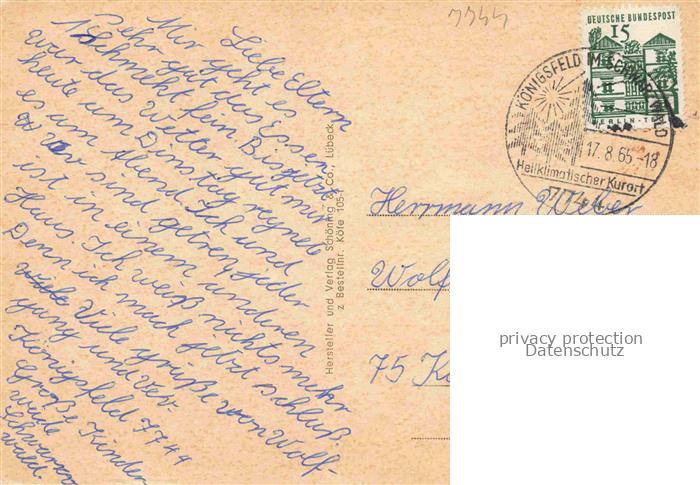 7744
Liebe Eltern
Mir geht es
sehr gut das Essen
schmekt fein Bis jetzt
war das Wetter gut nur
heute um Dinstag regnete
es am Abend. Ich und
sind getrent jeder
ist in einem anderen
Haus. Ich weiß nichts mehr
Denn ich mach jetzt schluß.
Viele grüße von Wolf-
gang und
Königsfeld 7744
Große Kinder
weide
Schwarz
wald.
Hersteller und Verlag Schöning & Co., Lübeck
z Bestellnr. Köfe 105-1
DEUTSCHE BUNDESPOST
15
BERLIN-T
KÖNIGSFELD IM SCHWARZWALD
17.8.65-18
Heilklimatischer Kurort
7744
Herrmann Weber
Wolf
75 Ka
privacy protection
Datenschutz